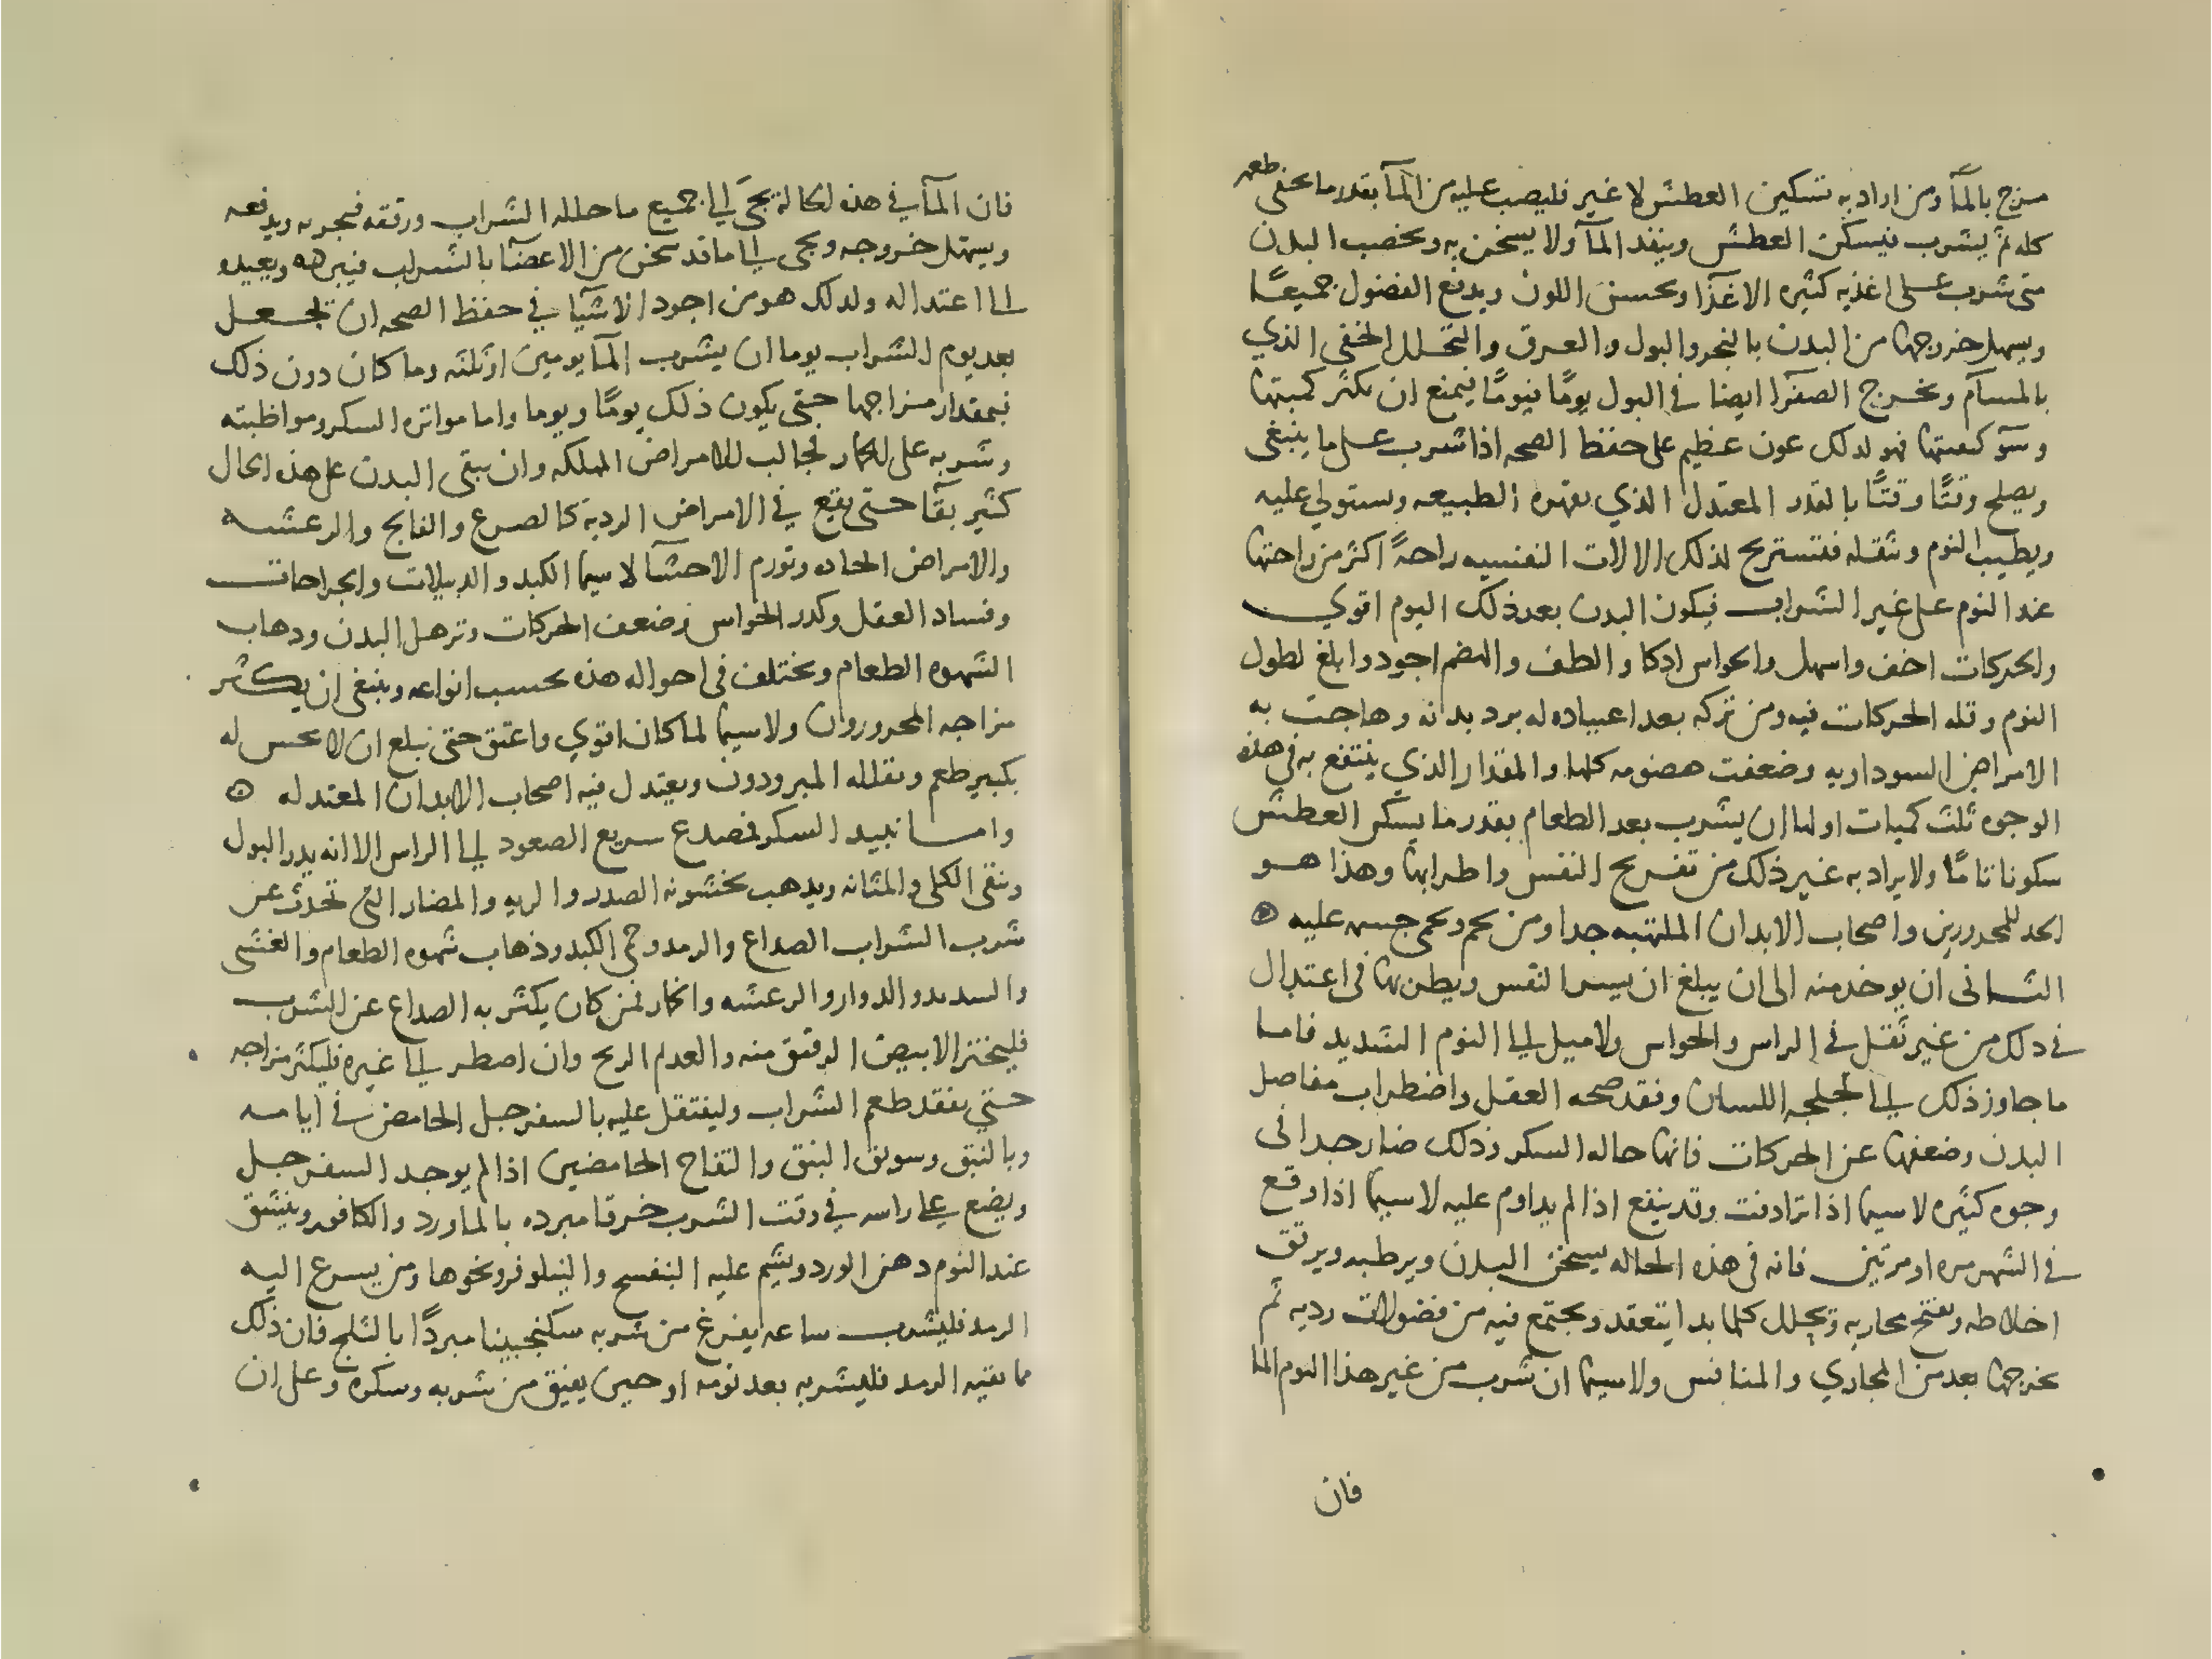 مزج بالمآ ومن اراد به تسكين العطش لا غير فليصب عليه من المآ بقدر ما يخفى طعمه
كله ثم يشرب فيسكن العطش وينفد المآ ولا يسخن به ويخصب البدن
متى شرب على اغذيه كثيره الاغذآ ويحسن اللون ويدفع الفضول جميعًا
ويسهل خروجها من البدن بالنجو والبول والعرق والتحلل الخفي الذي
بالمسآم ويخرج الصفرآ ايضا في البول يومًا فيومًا فيمنع ان تكثر كميتها
وسو كيفيتها فهو لدلك عون عظيم على حفظ الصحه اذا شرب على ما ينبغى
ويصلح وقتًا وقتًا بالقدر المعتدل الذي تقهره الطبيعه وستولي عليه
ويطيب النوم ويثقله فتستريح لذلك الالات النفسيه راحةً اكثر من راحتها
عند النوم على غير الشراب فيكون البدن بعد ذلك اليوم اقوي
والحركات اخف واسهل والحواس ادكا والطف والهضم اجود وابلغ لطول
النوم وقله الحركات فيه ومن تركه بعد اعتياده له برد بدنه وهاجت به
الامراض السوداويه وضعفت هضومه كلها والمقدار الذي ينتفع به في هذه
الوجوه ثلث كميات اولها ان يشرب بعد الطعام بقدر ما يسكن العطش
سكونا تامًا ولا يراد به غير ذلك من تفريح النفس واطرابها وهذا هو
الحد للمحرورين واصحاب الابدان الملتهبه جدا ومن يحم ويحمى جسمه عليه ه
الثانى ان يوخد منه الى ان يبلغ ان يسر النفس ويطربها في اعتدال
في دلك من غير ثقل في الراس والحواس ولا ميل الى النوم الشديد فاما
ما جاوز ذلك الى لجلجه اللسان وفقد صحه العقل واضطراب مفاصل
البدن وضعفها عن الحركات فانها حاله السكر وذلك ضار جدا فى
وجوه كثيره لا سيما اذا ترادفت وقد ينفع اذا لم يداوم عليه لا سيما اذا وقع
في الشهر مره او مرتين فانه فى هذه الحاله يسخن البدن ويرطبه ويرقق
اخلاطه ويفتح مجاريه ويحلل كلما بدا يتعقد ويجتمع فيه من فضولات رديه ثم
يخرجها بعد من المجاري والمنافس ولا سيما ان شرب من غير هذا اليوم الما
فان
فان المآ في هذه الحاله يجى الى جميع ما حلله الشراب ورققه فيجريه ويدفعه
ويسهل خروجه ويجى الى ما قد سخن من الاعضآ بالشراب فيبرده ويعيده
الى اعتداله ولدلك هو من اجود الاشيآ في حفظ الصحه ان تجعل
بعد يوم الشراب يوما ان يشرب المآ يومين او ثلثه وما كان دون ذلك
فبمقدار مزاجها حتى يكون ذلك يومًا ويوما واما مواتره السكر ومواظبته
وشربه على الخمار لجالب للامراض المهلكه وان يبقى البدن على هذه الحال
كثير بقآ حتى يقع في الامراض الرديه كالصرع والفالج والرعشه
والامراض الحاده وتورم الاحشآ لا سيما الكبد والدبيلات والجراحات
وفساد العقل وكدر الحواس وضعف الحركات وترهل البدن ودهاب
الشهوه الطعام ويختلف فى احواله هذه بحسب انواعه وينبغى ان يكثر
مزاجه المحرورون ولا سيما لما كان اقوي واعتق حتى يبلغ ان لا يحس له
بكبير طعم ويقلله المبرودون ويعتدل فيه اصحاب الابدان المعتدله ه
واما نبيد السكر فمصدع سريع الصعود الى الراس الا انه يدر البول
وينقى الكلى والمثانه ويدهب بخشونه الصدر والريه والمضار التى تحدث عن
شرب الشراب الصداع والرمد وحمى الكبد وذهاب شهوه الطعام والغشى
والسدد والدوار والرعشه والخمار فمن كان يكثر به الصداع عن الشرب
فليختر الابيض الرقيق منه والعديم الريح وان اضطر الى غيره فليكثر مزاجه
حتي يفقد طعم الشراب وليتنقل عليه بالسفرجل الحامض في ايامه
وبالنبق وسويق النبق والتفاح الحامضين اذا لم يوجد السفرجل
ويضع على راسه في وقت الشرب خرقا مبرده بالماورد والكافور وينشق
عند النوم دهن الورد ويشم عليه البنفسج والنيلوفر ونحوها ومن يسرع اليه
الرمد فليشرب ساعه يفرغ من شربه سكنجبينا مبردًا بالثلج فان ذلك
مما يقيه الرمد فليشربه بعد نومه او حين يفيق من شربه وسكره وعلى ان